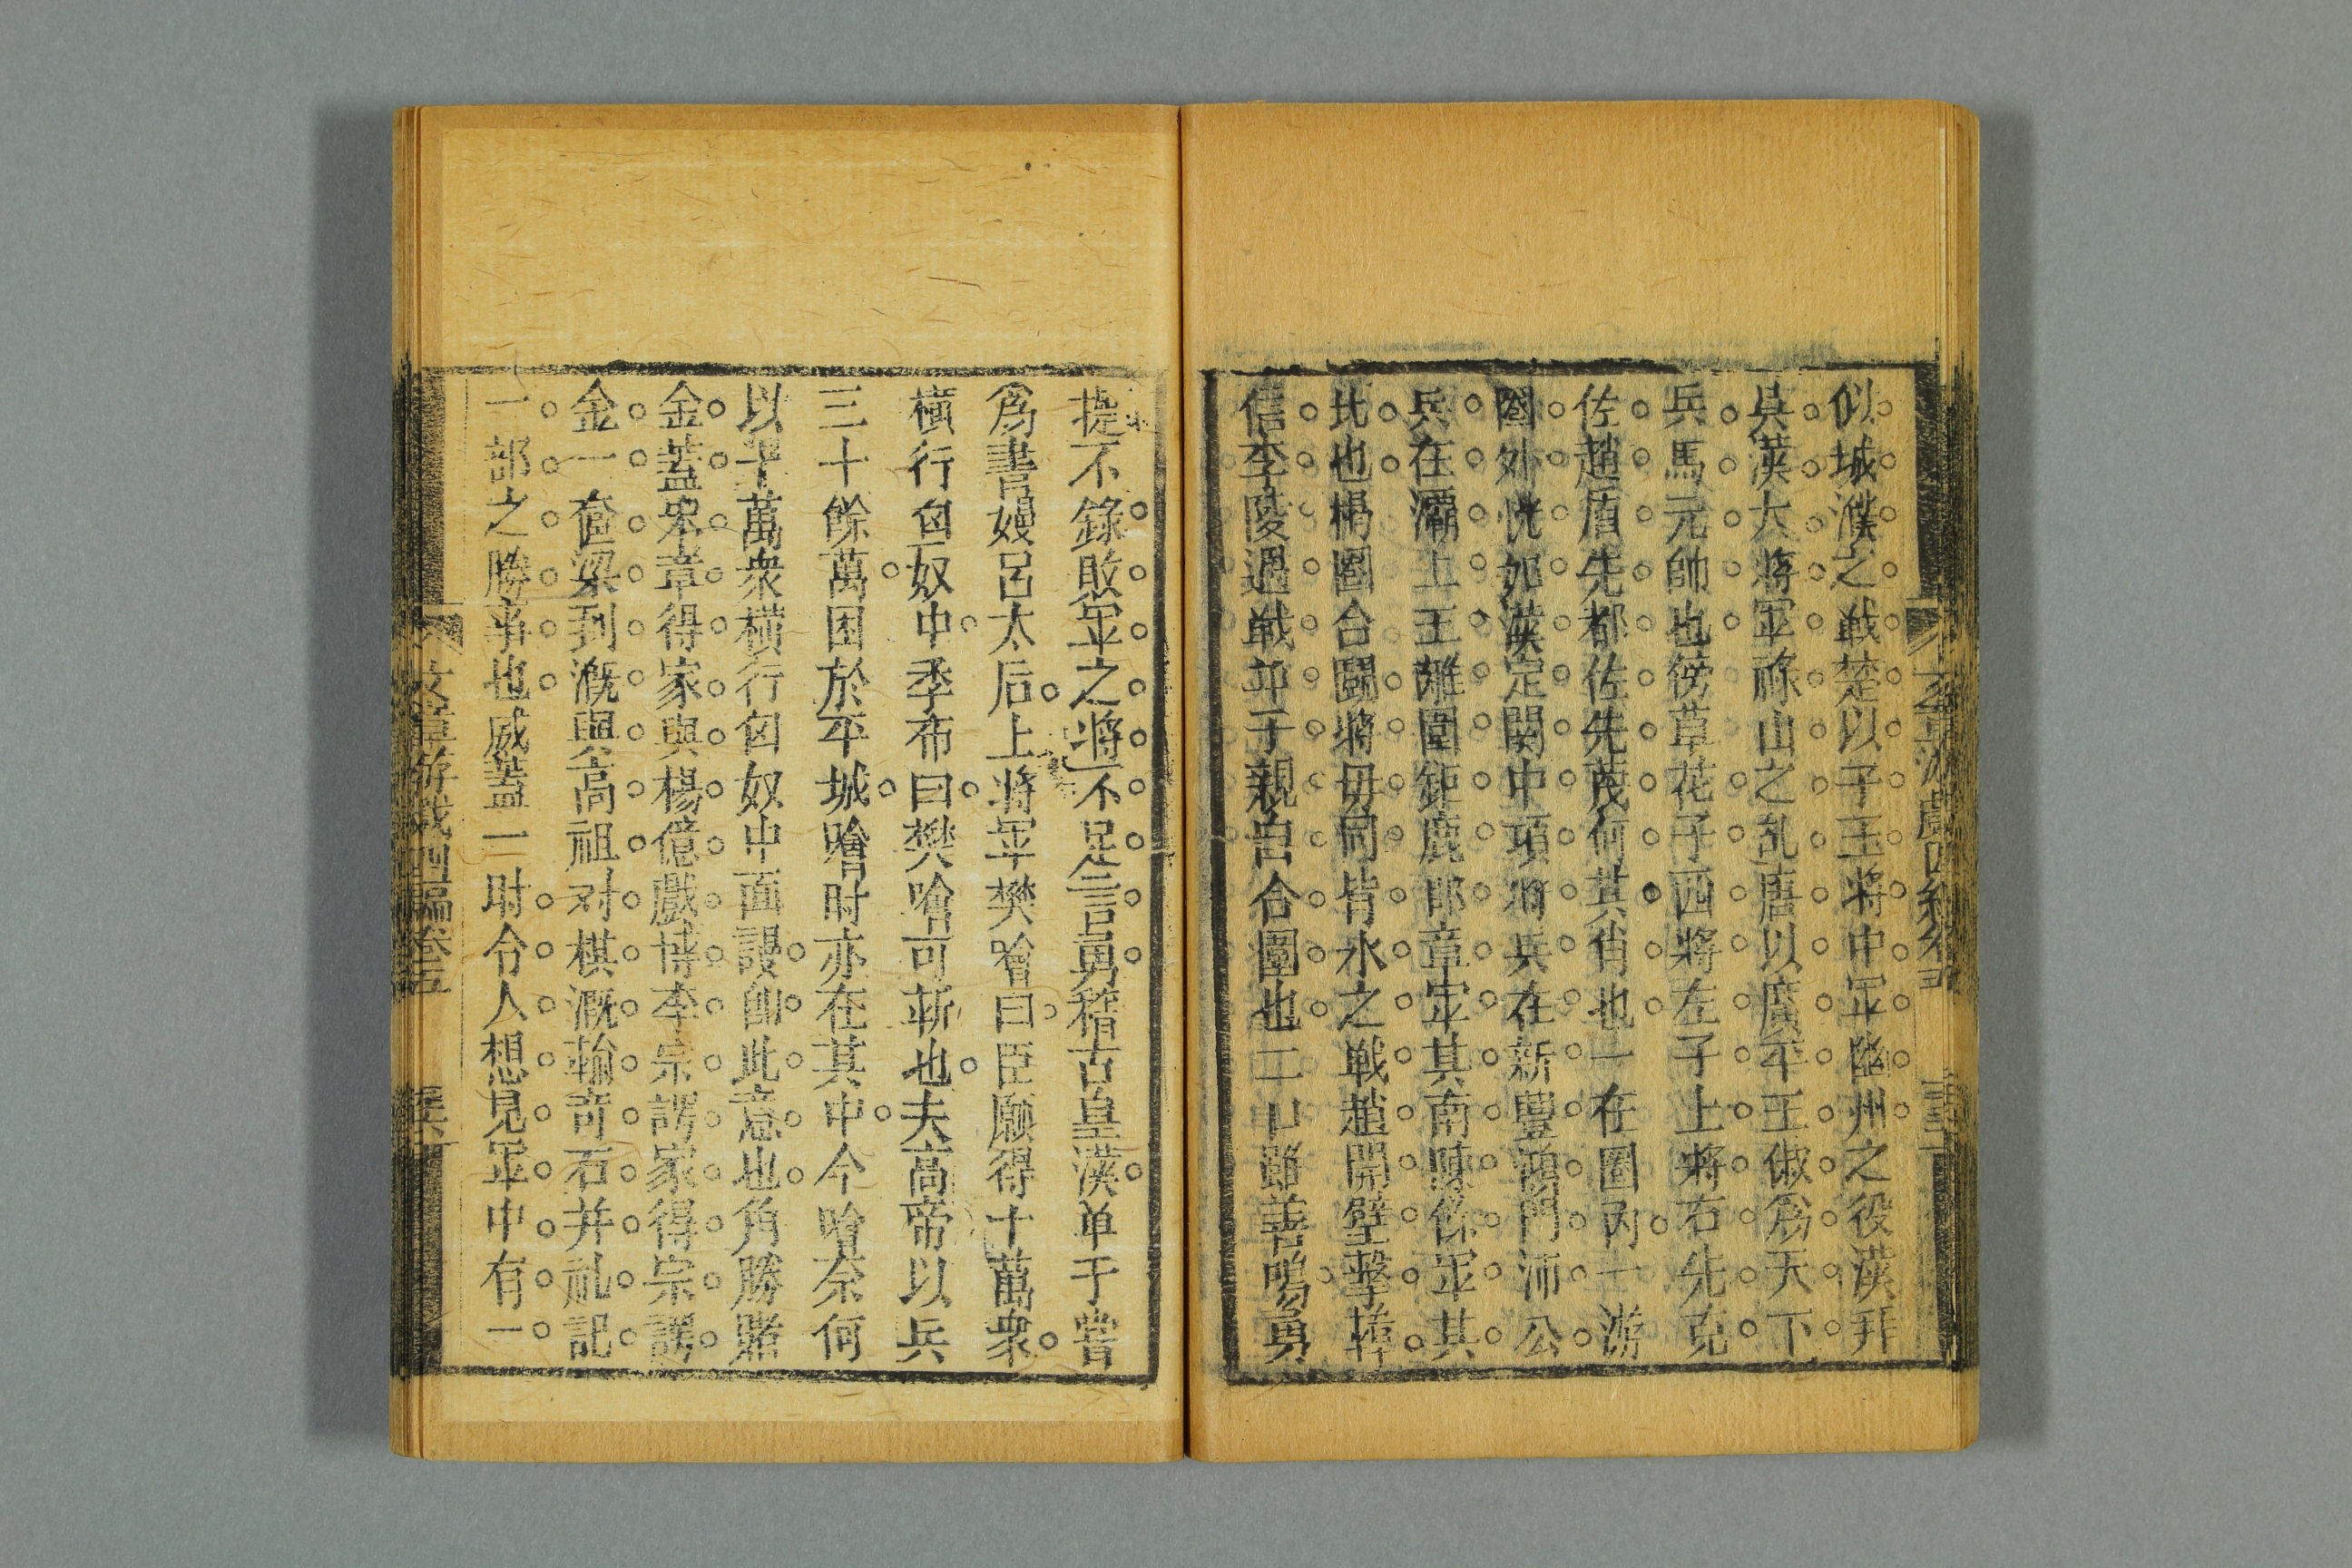 似城濮之戦楚以子玉將中軍幽州之役漢拜
吳漢大將軍祿山之乱唐以廣平王俶為天下
兵馬元帥也傍草花子西將左子上將右先克
佐趙盾先都佐先茂何其肖也一在圈内一游
圈外恍如漢定関中項将兵在新豐鴻門沛公
兵在灞上王離圍鉅鹿邯章軍其南陳餘軍其
北也楊圈合闘將毋同背水之戦趙開壁擊韓
信李陵遇戦单于親自合圍也二虫雖善鳴勇
提不錄敗軍之將不足言勇稽古皇漢单于嘗
為書嫚呂太后上將軍樊噲曰臣願得十萬衆
橫行匈奴中季布曰樊噲可斬也夫高帝以兵
三十餘萬困於平城噲时亦在其中今噲奈何
以十萬衆橫行匈奴中面謾卽此意也角勝賭
金蓋宋章得家與楊億戲博李宗諤家得宗諤
金一奩梁到溉與高祖对棋溉輸奇石并礼記
一部之勝事也威蓋一时令人想見軍中有一
文章游戲四編卷五
文章游戲四編卷五